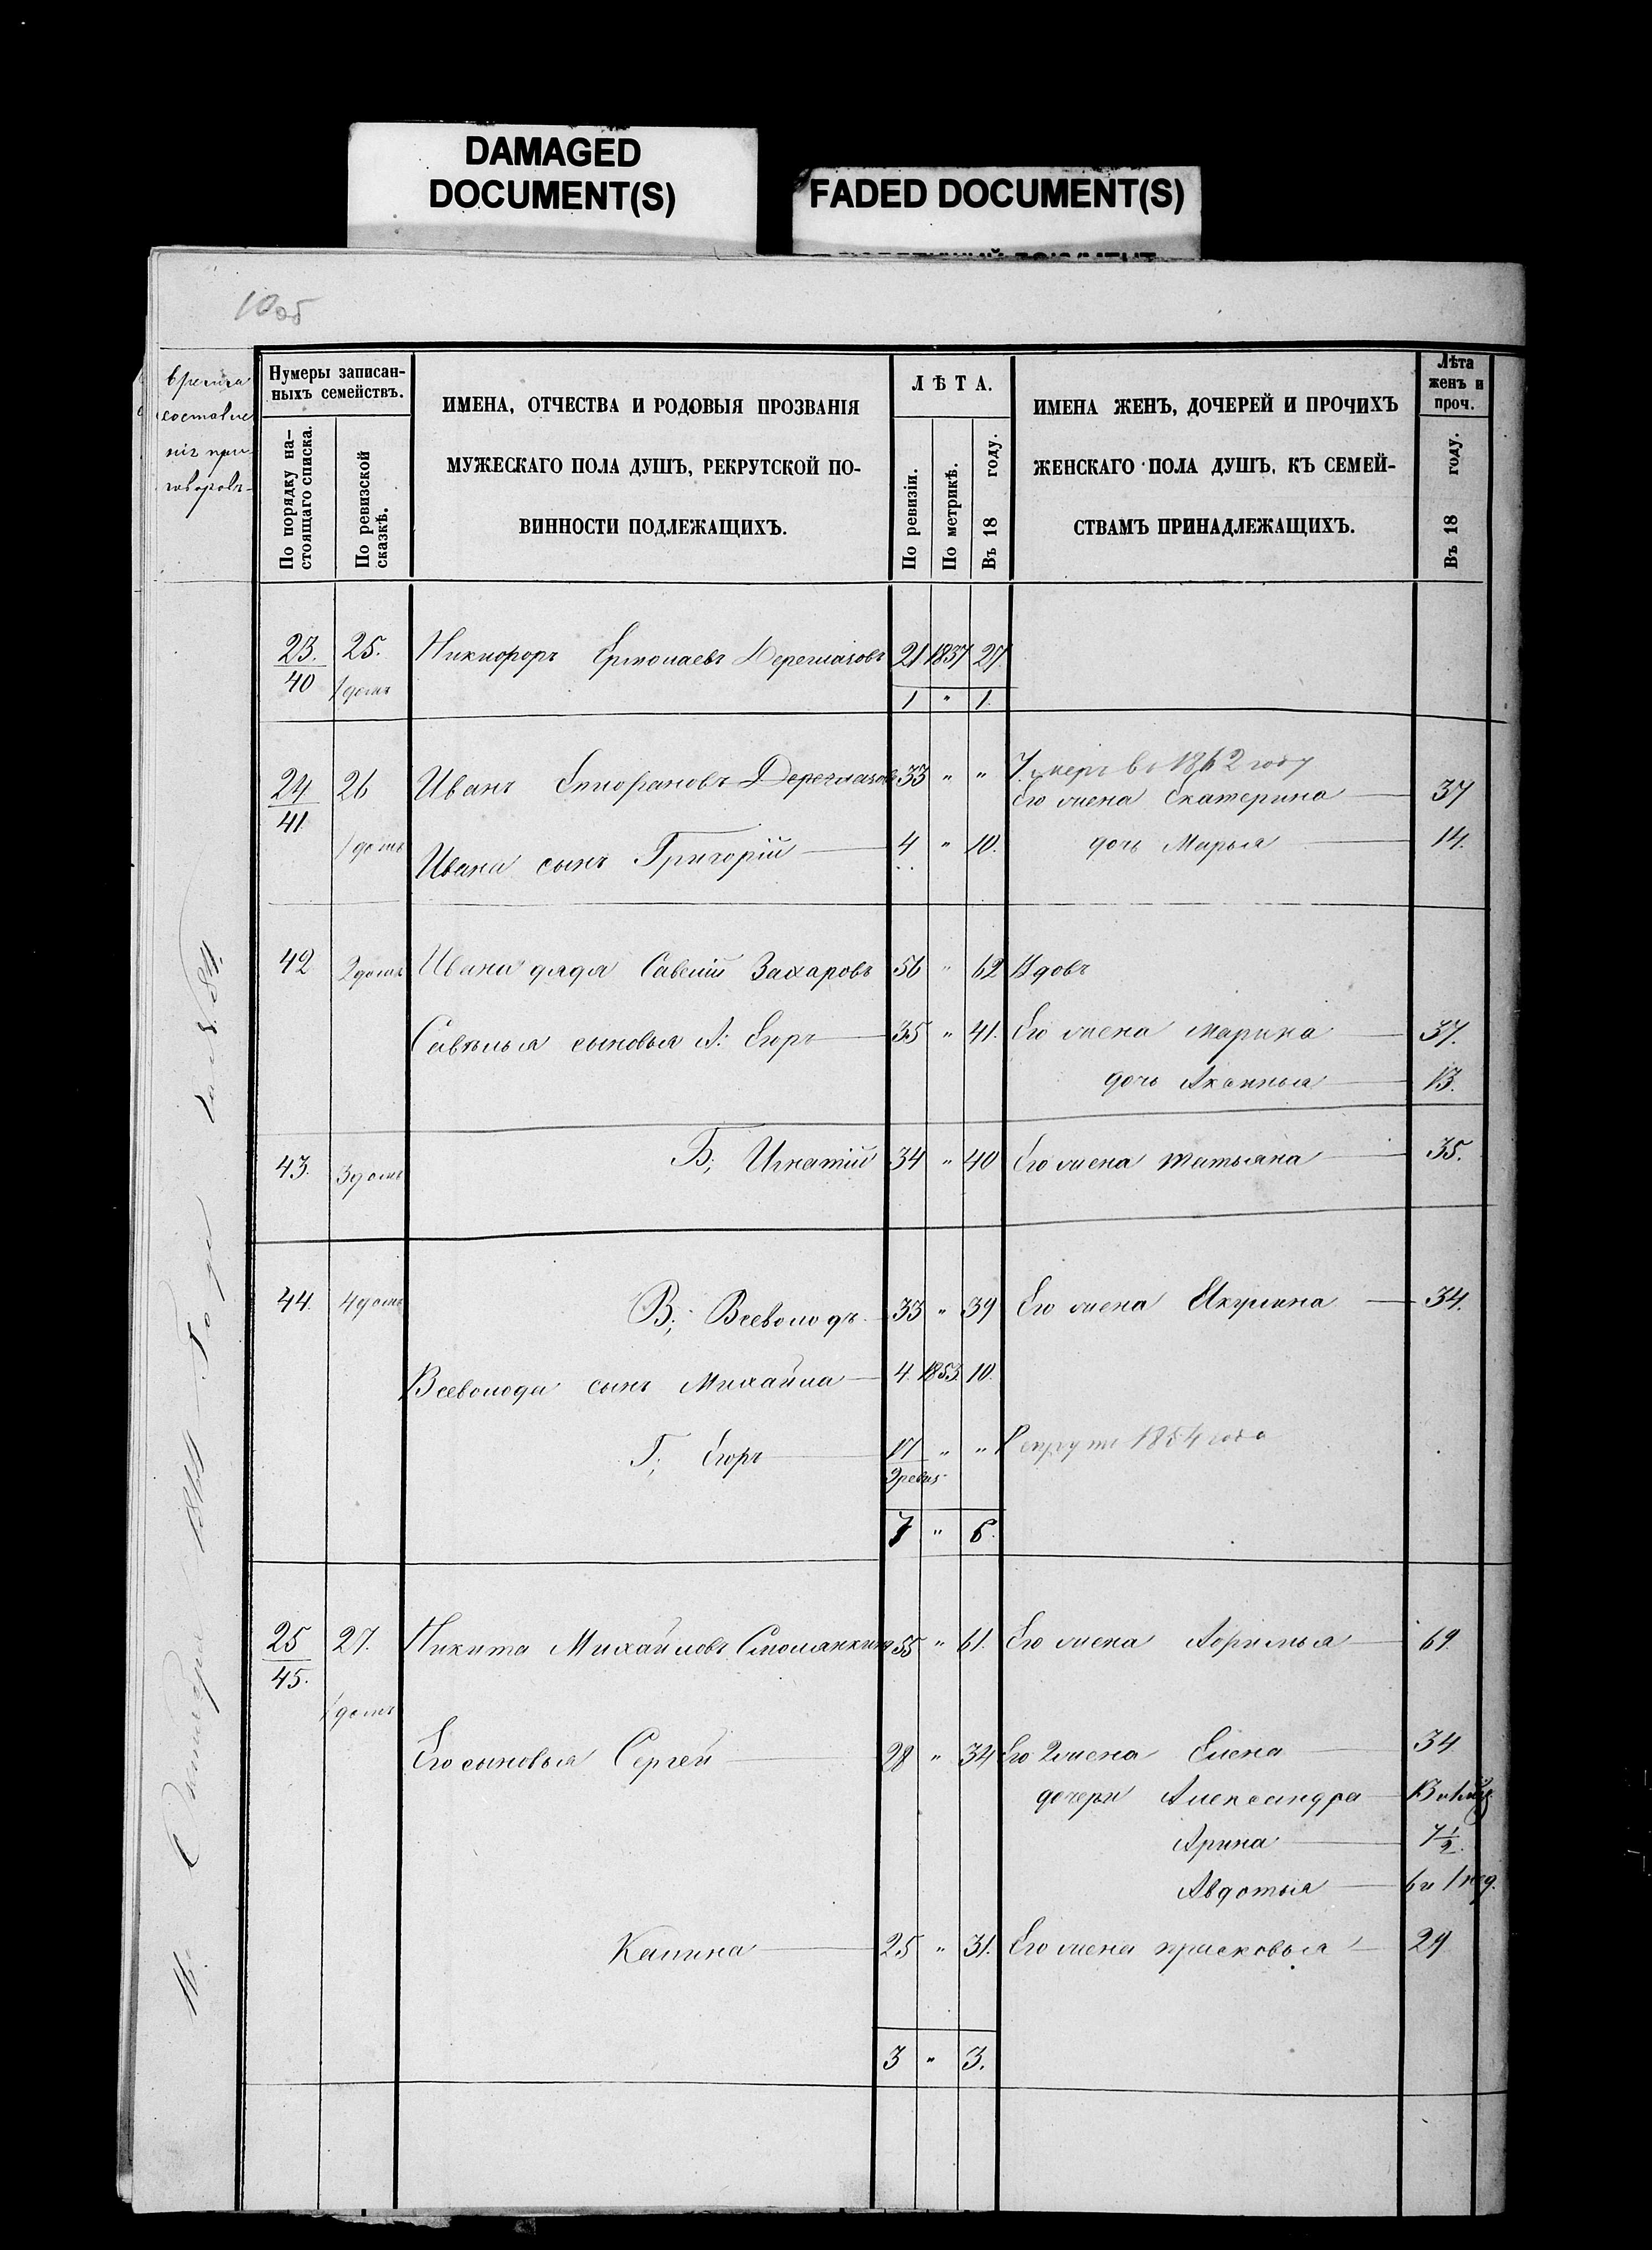 DAMAGED
DOCUMENT(S)
FADED DOCUMENT(S)
10 об
время
составле
нія при
говоровъ
Нумеры записан-
ныхъ семействъ.
По порядку на-
стоящаго списка.
По ревизской
сказкѣ.
ИМЕНА, ОТЧЕСТВА И РОДОВЫЯ ПРОЗВАНІЯ
МУЖЕСКАГО ПОЛА ДУШЪ, РЕКРУТСКОЙ ПО-
ВИННОСТИ ПОДЛЕЖАЩИХЪ.
ЛѢТА.
По ревизіи.
По метрикѣ.
Въ 18 году.
ИМЕНА ЖЕНЪ, ДОЧЕРЕЙ И ПРОЧИХЪ
ЖЕНСКАГО ПОЛА ДУШЪ, КЪ СЕМЕЙ-
СТВАМЪ ПРИНАДЛЕЖАЩИХЪ.
Лѣта
женъ и
проч.
Въ 18 году.
23. 25. Никифоръ Ермолаевъ 21 1837 27
40 1 домъ
1 " 1.
24 26 Иванъ 33 " " Умеръ въ 1862 году
41 Его жена Екатерина 37
1 домъ Ивана сынъ Григорій 4 " 10. дочь Марья 14.
42 2 домъ Ивана дядя Савелій Захаровъ 56 " 62 Вдовъ
Савелья сыновья А: Егоръ 35 " 41. Его жена Марина 37.
дочь 13.
43. 3 домъ Б; Игнатій 34 " 40 Его жена Татьяна 35.
44. 4 домъ В; Всеволодъ 33 " 39 Его жена Акулина 34.
Всеволода сынъ Михайла 4. 1853 10.
Г; Егоръ 17 " " Рекрутъ 1854 года
9 ревиз.
7 " 6.
25 27. Никита Михайловъ 55 " 61. Его жена 69.
45.
1 домъ
Его сыновья Сергей 28 " 34 Его 2 жена Елена 34
дочери Александра
Арина 7 1/2.
Авдотья 6 и 1 нед.
Калина 25 " 31. Его жена прасковья 29
3 " 3.
16. Октября Года